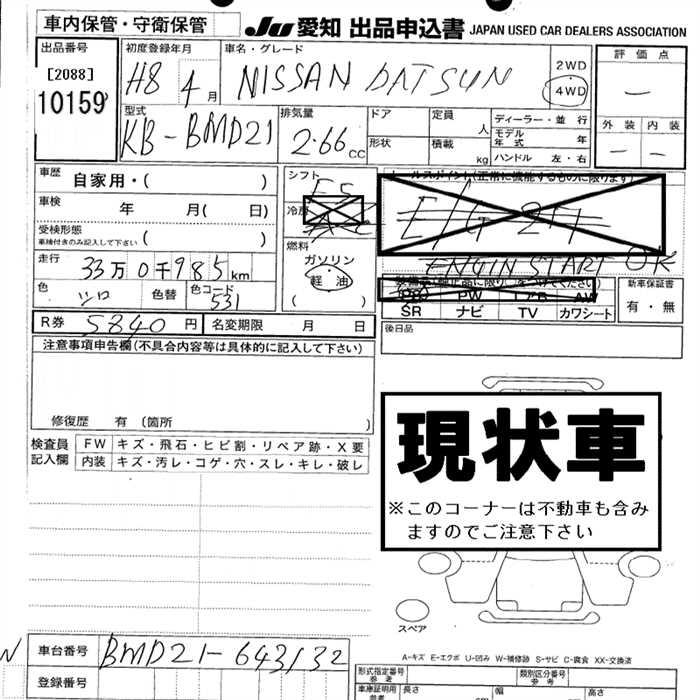 車内保管・守衛保管 JU 愛知 出品申込書 JAPAN USED CAR DEALERS ASSOCIATION
出品番号 初度登録年月 車名・グレード 2WD 評価点
[2088] H8 4月 NISSAN DATSUN 4WD —
10159 型式 排気量 ドア 定員 ディーラー・並行 外装 内装
KB-BMD21 2.66 CC 人 モデル年式 年 — —
形状 積載 kg ハンドル 左・右
車歴 自家用・( ) シフト F5 セールスポイント(正常に機能するものに限ります)
車検 年 月( 日) 冷房 AC E/G
受検形態 ( )
車検付きのみ記入して下さい
燃料 ENGIN START OK
走行 33万0千985km ガソリン
軽油
色 シロ 色替 色コード 531 PS PW エアB AW 新車保証書
SR ナビ TV カワシート 有・無
R券 5840円 名変期限 月 日 後日品
注意事項申告欄(不具合内容等は具体的に記入して下さい)
修復歴 有 〔箇所 〕
検査員 FW キズ・飛石・ヒビ割・リペア跡・X要
記入欄 内装 キズ・汚レ・コゲ・穴・スレ・キレ・破レ
現状車
※このコーナーは不動車も含み
ますのでご注意下さい
スペア
A-キズ E-エクボ U-凹み W-補修跡 S-サビ C-腐食 XX-交換済
N 車台番号 BMD21-643132
登録番号
形式指定番号 参考 類別区分番号 参考
車庫証明用 長さ 幅 高さ